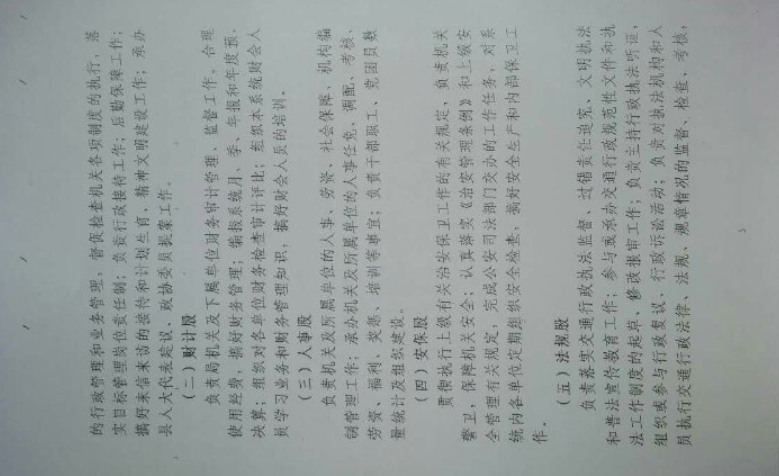 的行政管理和业务管理，督促检查机关各项制度的执行，落
实目标管理岗位责任制；负责行政接待工作；后勤保障工作；
搞好来信来访的接待和计划生育，精神文明建设工作；承办
县人大代表建议、政协委员提案工作。
（二）财计股
负责局机关及下属单位财务审计管理、监督工作。合理
使用经费，搞好财务管理；编报系统月、季、年报和年度预、
决算；组织对各单位财务检查审计评比；组织本系统财会人
员学习业务和财务管理知识，搞好财会人员的培训。
（三）人事股
负责机关及所属单位的人事、劳资、社会保障、机构编
制管理工作；承办机关及所属单位的人事任免、调配、考核、
劳资、福利、奖惩、培训等事宜；负责干部职工、党团员数
量统计及组织建设。
（四）安保股
贯彻执行上级有关治安保卫工作的有关规定，负责机关
警卫，保障机关安全；认真落实《治安管理条例》和上级安
全管理有关规定，完成公安司法部门交办的工作任务，对系
统内各单位定期组织安全检查，搞好安全生产和内部保卫工
作。
（五）法规股
负责落实交通行政执法监督、过错责任追究、文明执法
和普法宣传教育工作；参与或承办交通行政规范性文件和执
法工作制度的起草、修改报审工作；负责主持行政执法听证，
组织或参与行政复议、行政诉讼活动；负责对执法机构和人
员执行交通行政法律、法规、规章情况的监督、检查、考核，